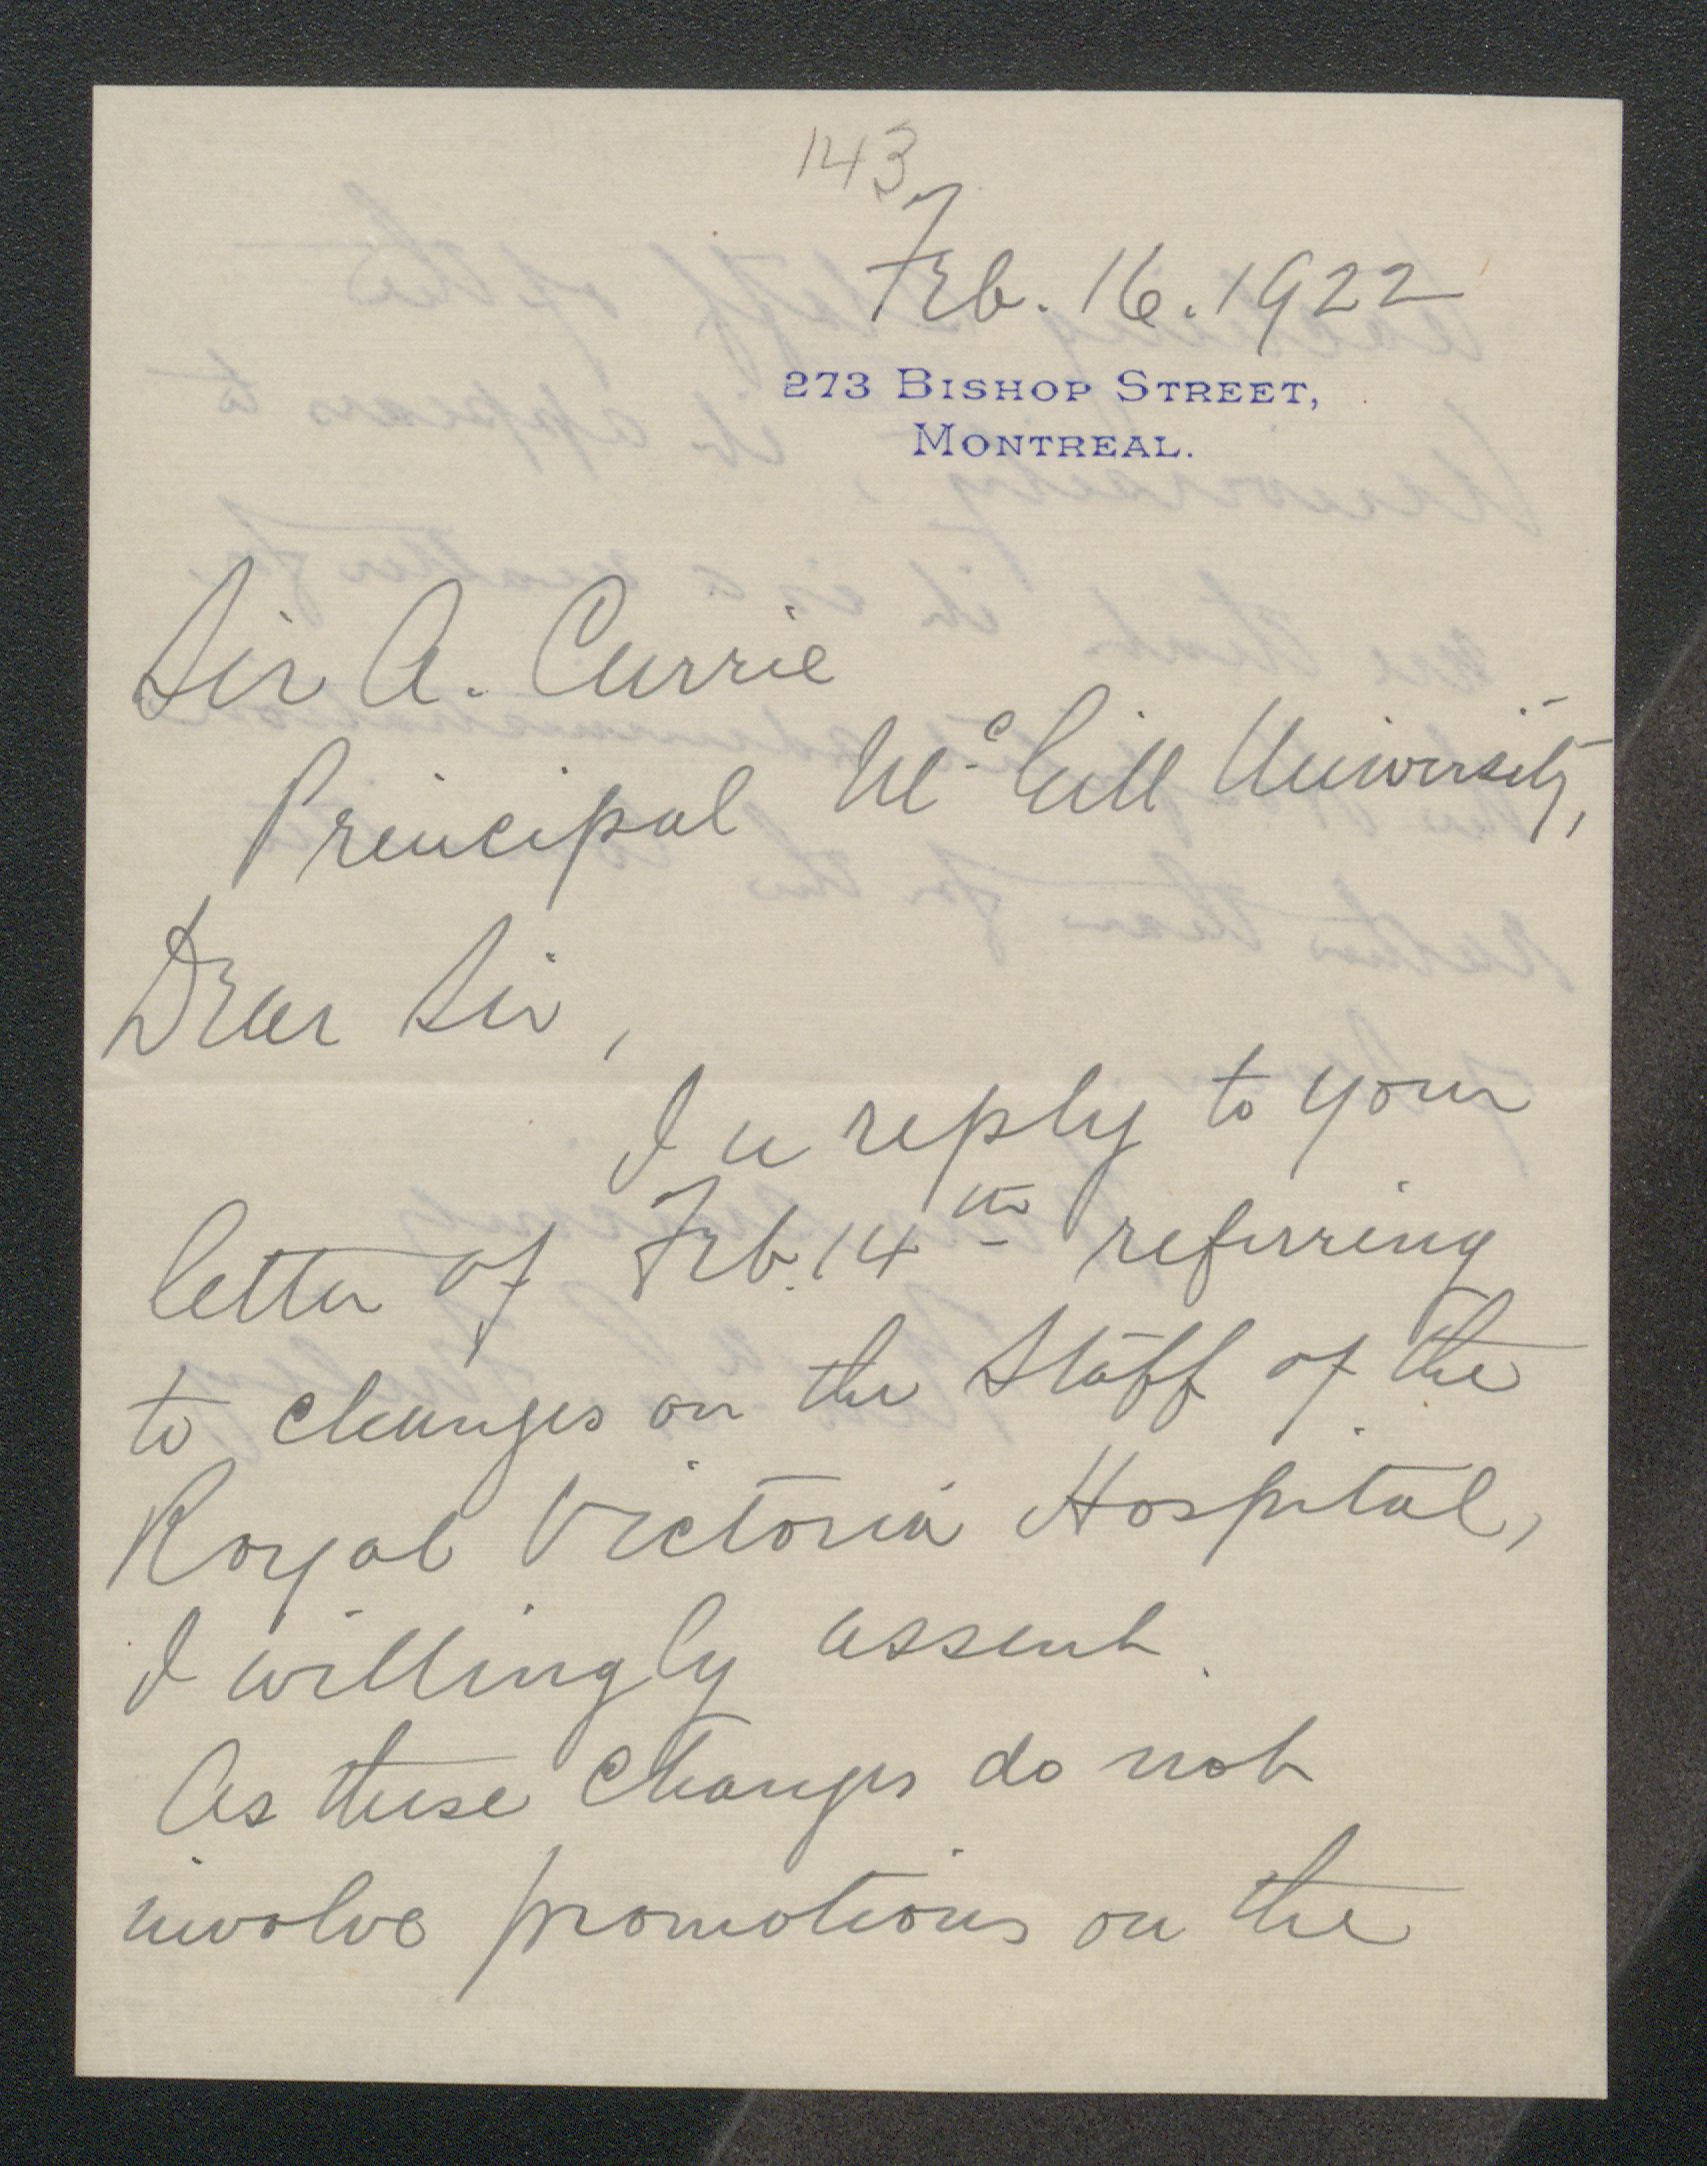 143
Feb. 16. 1922
273 BISHOP STREET,
MONTREAL.
Sir A. Currie
Principal McGill University,
Dear Sir,
In reply to your
letter of Feb. 14th referring
to changes on the Staff of the
Royal Victoria Hospital,
I willingly assent.
As these changes do not
involve promotions on the